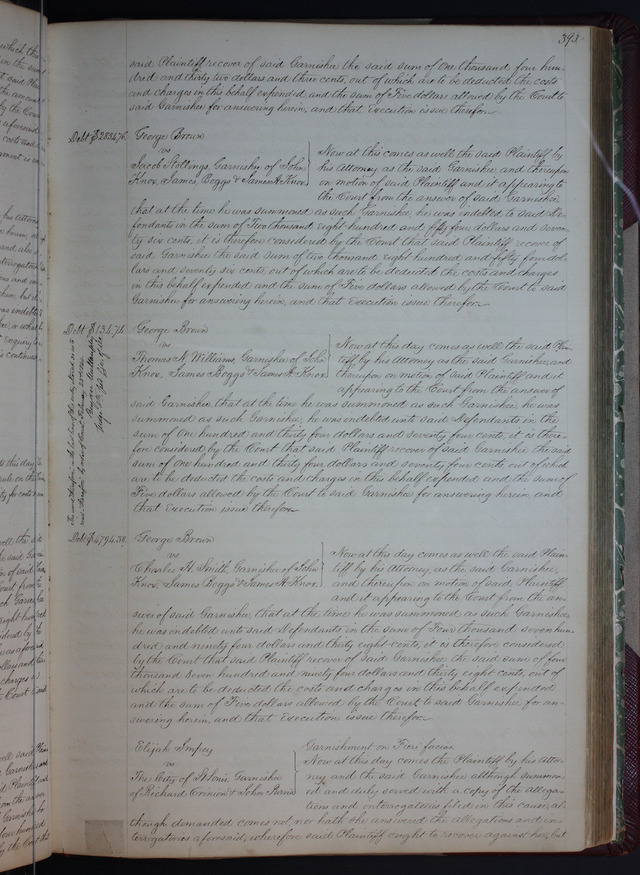 393
said Plaintiff recover of said Garnishee the said sum of One thousand four hun-
dred and thirty two dollars and three cents, out of which are to be deducted the costs
and charges in this behalf expended, and the sum of Five dollars allowed by the Court to
said Garnishee for answering herein, and that Execution issue therefor.
Debt $2854.76. George Brown
vs
Jacob Stollings, Garnishee of John
Knox, James Boggs & James A. Knox
Now at this comes as well the said Plaintiff by
his Attorney as the said Garnishee, and thereupon
on motion of said Plaintiff and it appearing to
the Court from the answer of said Garnishee
that at the time he was summoned as such Garnishee, he was indebted to said De-
fendants in the sum of Two thousand eight hundred and fifty four dollars and seven-
ty six cents, it is therefore considered by the Court that said Plaintiff recover of
said Garnishee the said sum of two thousand eight hundred and fifty four dol-
lars and seventy six cents, out of which are to be deducted the costs and charges
in this behalf expended and the sum of Five dollars allowed by the Court to said
Garnishee for answering herein, and that Execution issue therefor.
Debt $134.74. George Brown
vs
Thomas H. Williams, Garnishee of John
Knox, James Boggs & James A. Knox
Now at this day comes as well the said Plain-
tiff by his Attorney as the said Garnishee, and
thereupon on motion of said Plaintiff and it
appearing to the Court from the answer of
said Garnishee, that at the time he was summoned as such Garnishee he was
summoned as such Garnishee, he was indebted unto said Defendants in the
sum of One hundred and thirty four dollars and seventy four cents, it is there-
fore considered by the Court that said Plaintiff recover of said Garnishee the said
sum of One hundred and thirty four dollars and seventy four cents, out of which
are to be deducted the costs and charges in this behalf expended and the sum of
Five dollars allowed by the Court to said Garnishee for answering herein, and
that Execution issue therefor.
Debt $4794.38. George Brown
vs
Charles H. Smith, Garnishee of John
Knox, James Boggs & James A. Knox
Now at this day comes as well the said Plain-
tiff by his Attorney, as the said Garnishee,
and thereupon on motion of said Plaintiff
and it appearing to the Court from the an-
swer of said Garnishee, that at the time he was summoned as such Garnishee,
he was indebted unto said Defendants in the sum of Four thousand seven hun-
dred and ninety four dollars and thirty eight cents, it is therefore considered
by the Court that said Plaintiff recover of said Garnishee the said sum of four
thousand seven hundred and ninety four dollars and thirty eight cents, out of
which are to be deducted the costs and charges in this behalf expended
and the sum of Five dollars allowed by the Court to said Garnishee for an-
swering herein, and that Execution issue therefor.
Elijah Impey
vs
The City of St Louis, Garnishee
of Richard &
Garnishment on Fieri facias
Now at this day comes the Plaintiff by his Attor-
ney, and the said Garnishee although summon-
ed and duly served with a copy of the allega-
tions and interrogatories filed in this cause, al-
though demanded comes not, nor hath she answered the allegations and in-
terrogatories aforesaid, wherefore said Plaintiff ought to recover against her, but